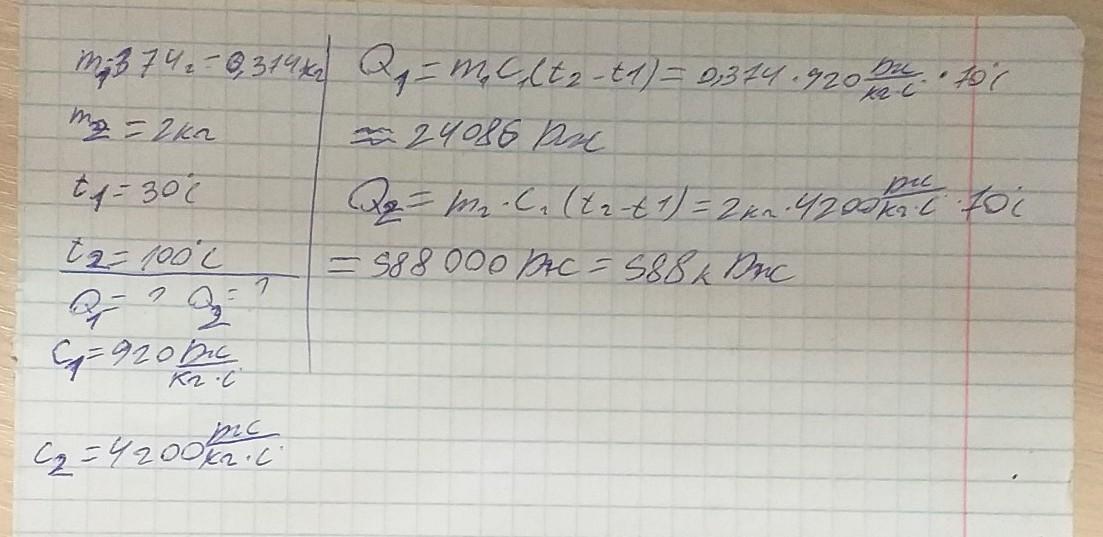 m₁=374г=0,374кг
m₂=2кг
t₁=30°C
t₂=100°C
Q₁=? Q₂=?
C₁=920 Дж/кг·C
C₂=4200 Дж/кг·C
Q₁=m₁C₁(t₂-t1)=0,374·920 Дж/кг·C·70°C
≈24086 Дж
Q₂=m₂·C₂(t₂-t1)=2кг·4200 Дж/кг·C·70°C
=588000 Дж=588кДж